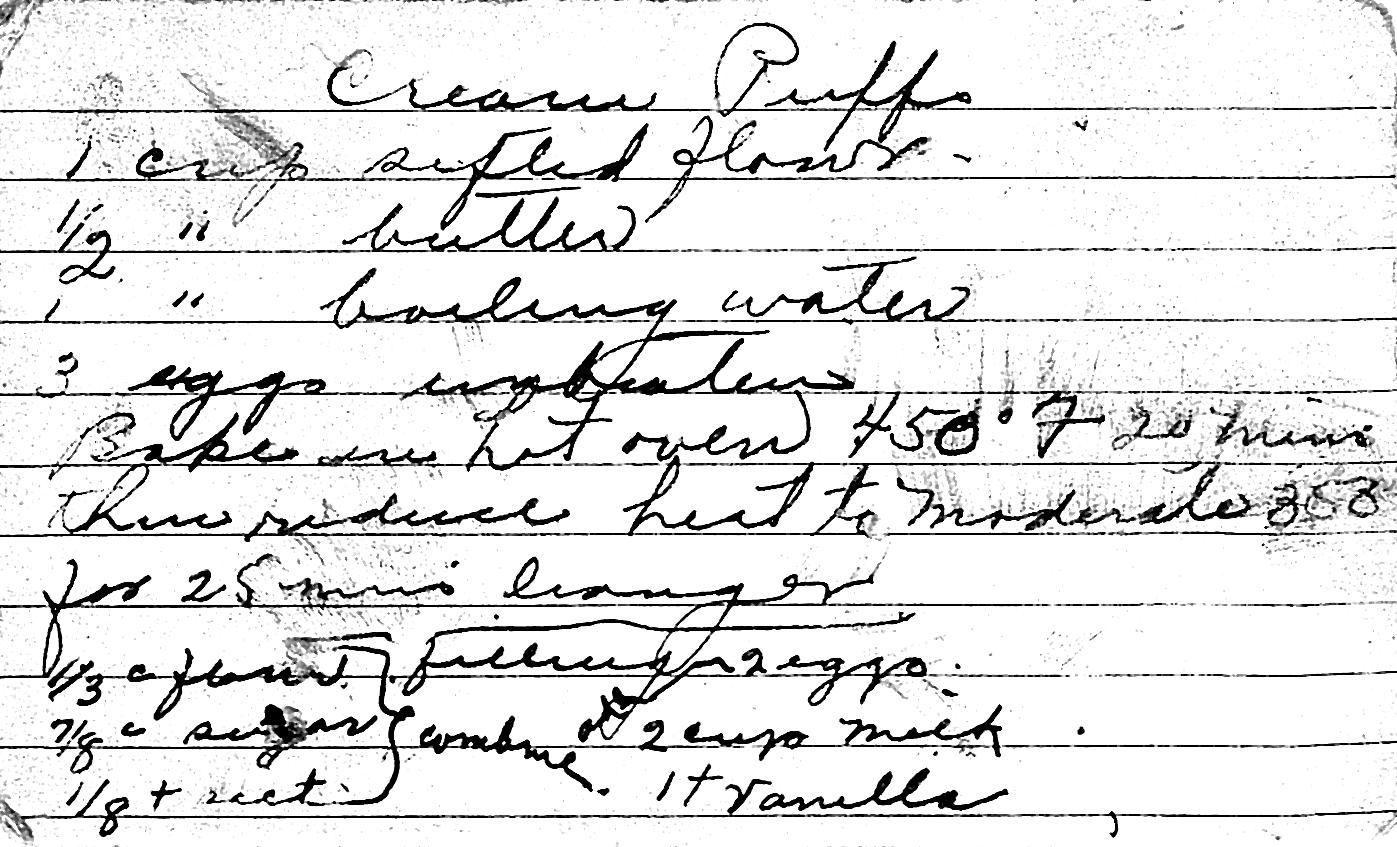 Cream Puffs
1 cup sifted flour -
1/2 " butter
1 " boiling water
3 eggs unbeaten
Bake in hot oven 450° F 20 mins
then reduce heat to moderate 350
for 25 mins longer
1/3 c flour } filling 2 eggs.
7/8 c sugar } combine 2 cup milk .
1/8 t salt } 1 t vanilla